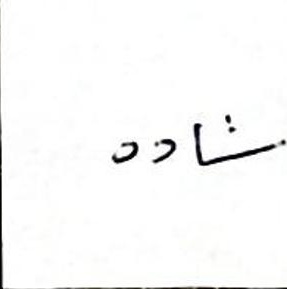 شادده